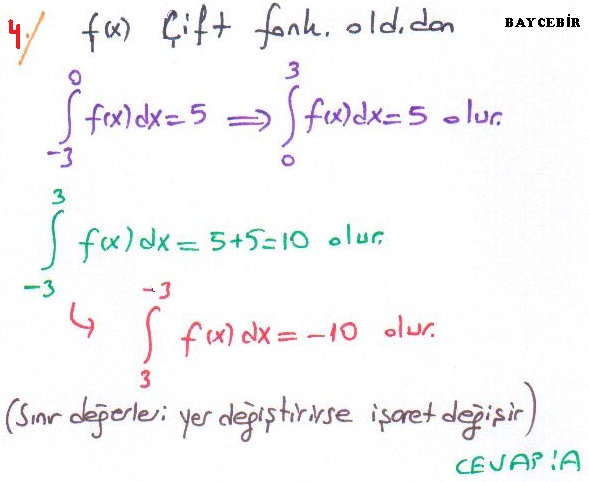 4./ f(x) Çift fonk. old.dan BAYCEBİR
∫₋₃⁰ f(x)dx = 5 ⟹ ∫₀³ f(x)dx = 5 olur.
∫₋₃³ f(x)dx = 5+5=10 olur.
↳ ∫₃⁻³ f(x)dx = -10 olur.
(Sınır değerleri yer değiştirirse işaret değişir)
CEVAP:A